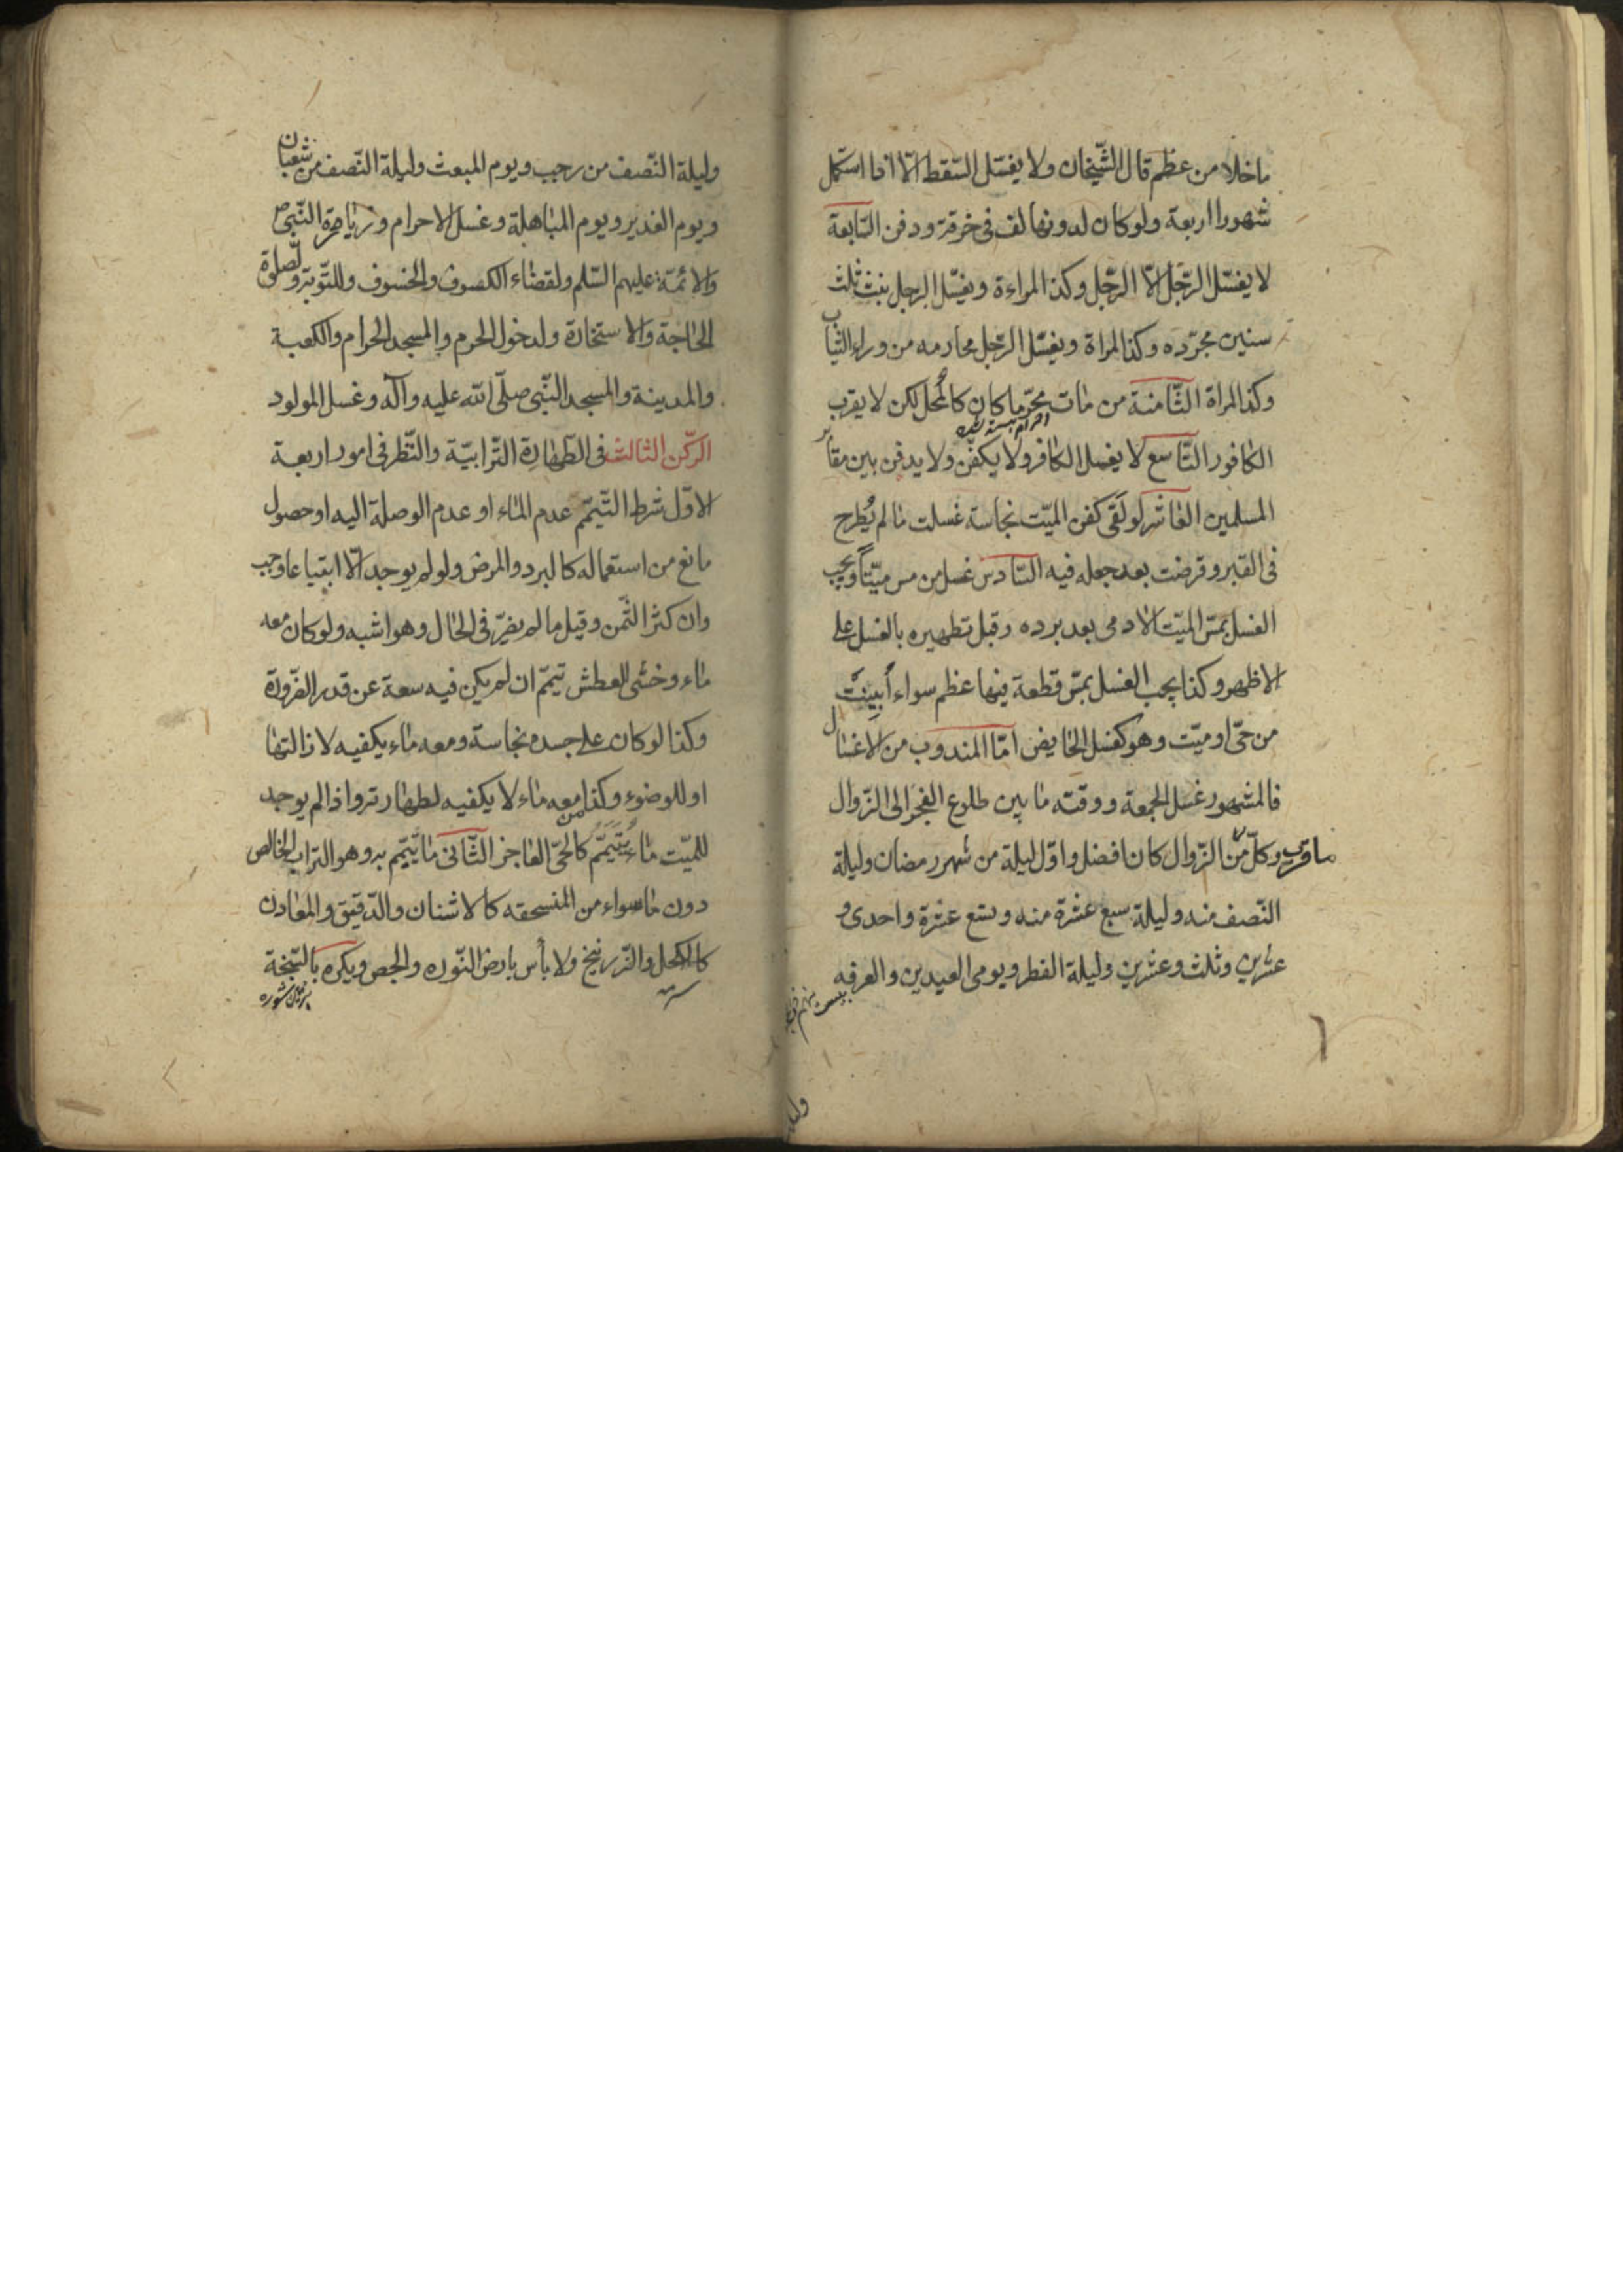 ما خلا من عظم قال الشّيخان ولا يغسّل السّقط الّا اذا استكمل
شهورا اربعة ولو كان لدونها لف فى خرقة ودفن السّابعة
لا يغسّل الرّجل الّا الرّجل وكذا المراءة ويغسّل الرجل بنت ثلث
سنين مجرّده وكذا المراة ويغسّل الرّجل محارمه من وراء الثّياب
وكذا المراة الثّامنة من مات محرّما كان كالمُحل لكن لا يقرب
الكافور التّاسع لا يغسل الكافر ولا يكفّن ولا يدفن بين مقابر
المسلمين العاشر لو لقى كفن الميّت نجاسة غسلت ما لم يُطرح
فى القبر وقرضت بعد جعله فيه السّادس غسل من مس ميّتاً ويجب
الغسل بمسّ الميّت الادمى بعد برده وقبل تطهيره بالغسل على
الاظهر وكذا يجب الغسل بمسّ قطعة فيها عظم سواء أُبِينَت
من حىّ او ميّت وهو كغسل الحايض امّا المندوب من الاغسال
فالمشهور غسل الجمعة ووقته ما بين طلوع الفجر الى الزّوال
وكلّما قرب من الزّوال كان افضل واوّل ليلة من شهر رمضان وليلة
النّصف منه وليلة سبع عشرة منه وتسع عشرة واحدى و
عشرين وثلث وعشرين وليلة الفطر ويومى العيدين والعرفه
وليلة النّصف من رجب ويوم المبعث وليلة النّصف من شعبان
ويوم الغدير ويوم المباهلة وغسل الاحرام وزيارة النّبى ص
والائمّة عليهم السّلم ولقضاء الكسوف والخسوف وللتّوبة ولصلوة
الحاجة والاستخارة ولدخول الحرم والمسجد الحرام والكعبة
والمدينة والمسجد النّبى صلّى الله عليه وآله وغسل المولود
الرّكن الثالث فى الطّهارة التّرابيّة والنّظر فى امور اربعة
الاوّل شرط التّيمّم عدم الماء او عدم الوصلة اليه او حصول
مانع من استعماله كالبرد والمرض ولو لم يوجد الّا ابتياعا وجب
وان كثر الثّمن وقيل ما لم يضرّ فى الحال وهو اشبه ولو كان معه
ماء وخشى العطش تيمّم ان لم يكن فيه سعة عن قدر الضّرورة
وكذا لو كان على جسده نجاسة ومعه ماء يكفيه لازالتها
او للوضوء وكذا من معه ماء لا يكفيه لطهارته واذا لم يوجد
للميّت ماء يُتَيَمَّم كالحىّ العاجز الثّانى ما يتيمّم به وهو التراب الخالص
دون ما سواء من المنسحقه كالاشنان والدّقيق والمعادن
كالكحل والزّرنيخ ولا بأس بارض النّوره والجص ويكره بالسّبخة